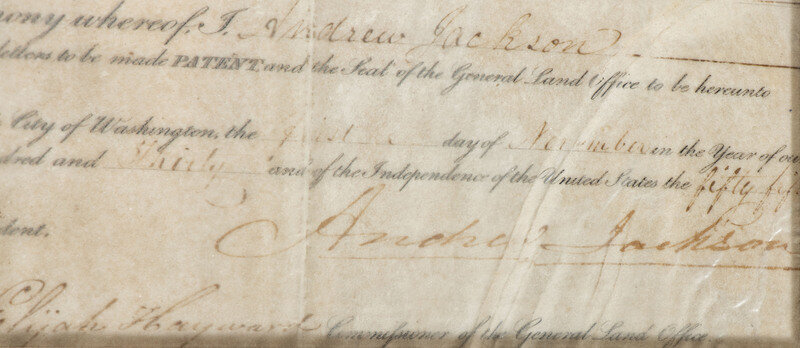 mony whereof, I, Andrew Jackson
letters to be made PATENT, and the Seal of the General Land Office to be hereunto
City of Washington, the first day of November in the Year of our
dred and Thirty and of the Independence of the United States the fifty fif
Andrew Jackson
ident.
Elijah Hayward Commissioner of the General Land Office.